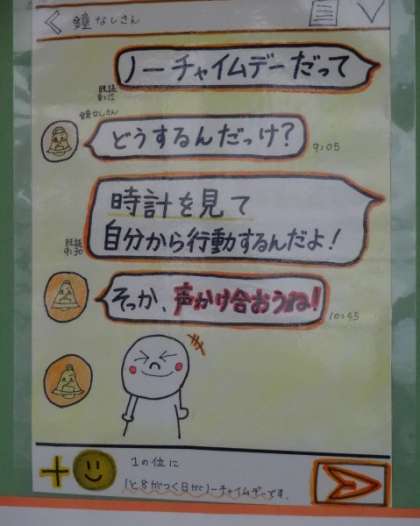 鐘なしさん
ノーチャイムデーだって
既読
鐘なしさん
どうするんだっけ?
9:05
時計を見て
自分から行動するんだよ!
既読
9:30
そっか、声かけ合おうね!
10:55
1の位に
1と8がつく日がノーチャイムデーです。